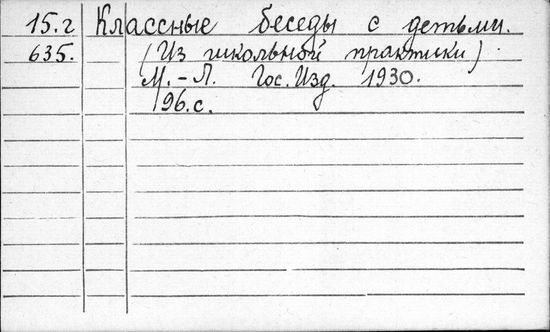 15.г Классные беседы с детьми.
635. (Из школьной практики)
М.-Л. Гос. Изд. 1930.
96.с.